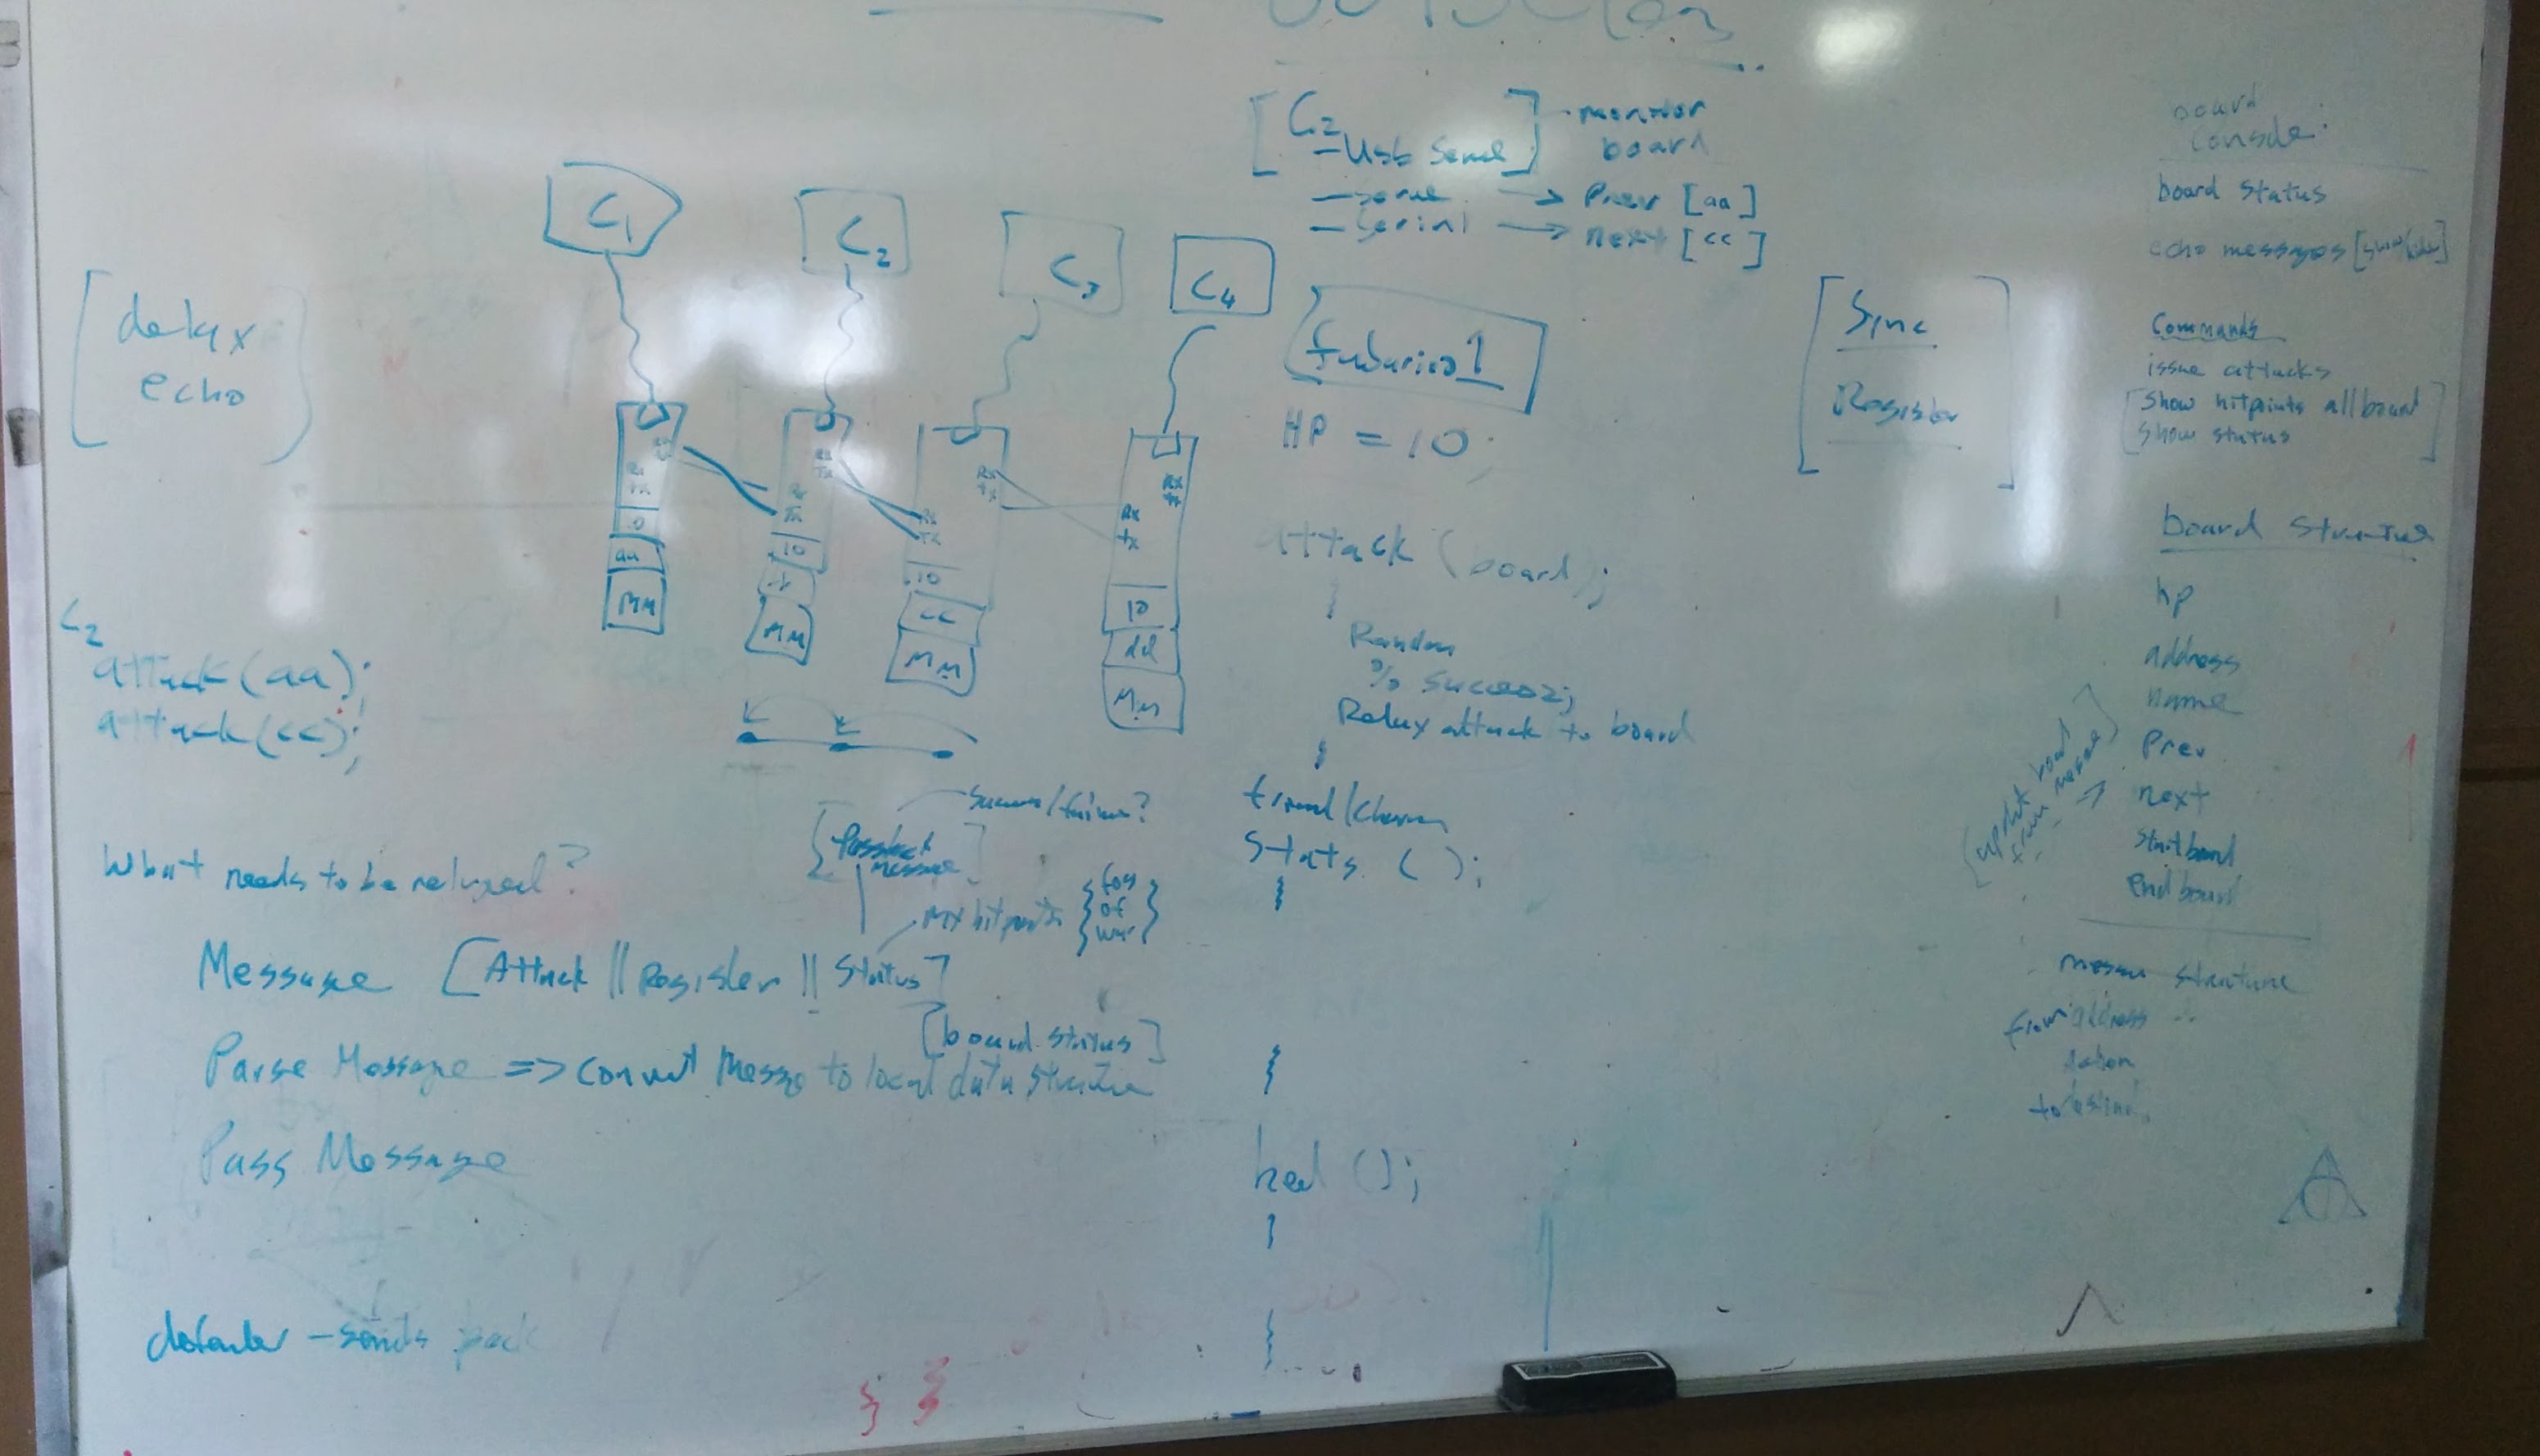 C2
-Usb Serial
monitor
board
Prev [aa]
- serial → next [cc]
C1
C2
C3
C4
[delay
echo]
HP = 10;
Rx
Tx
Rx
Tx
Rx
Tx
Rx
Tx
aa
MM
10
MM
10
cc
MM
10
dd
MM
attack (board);
{
Random
% success;
Relay attack to board
}
C2
attack(aa);
attack(cc);
What needs to be relayed?
success/failure?
message
hitpoints
{fog
of
war}
Message [Attack || Register || Status]
[board status]
Parse Message => convert Message to local data structure
Pass Message
defender - sends back
Stats ();
{
}
heal ();
{
}
[Sync
Register]
board
Console:
board status
echo messages
Commands
issue attacks
[Show hitpoints all board
Show status]
board structure
hp
address
name
Prev
next
start board
end board
structure
from address
action